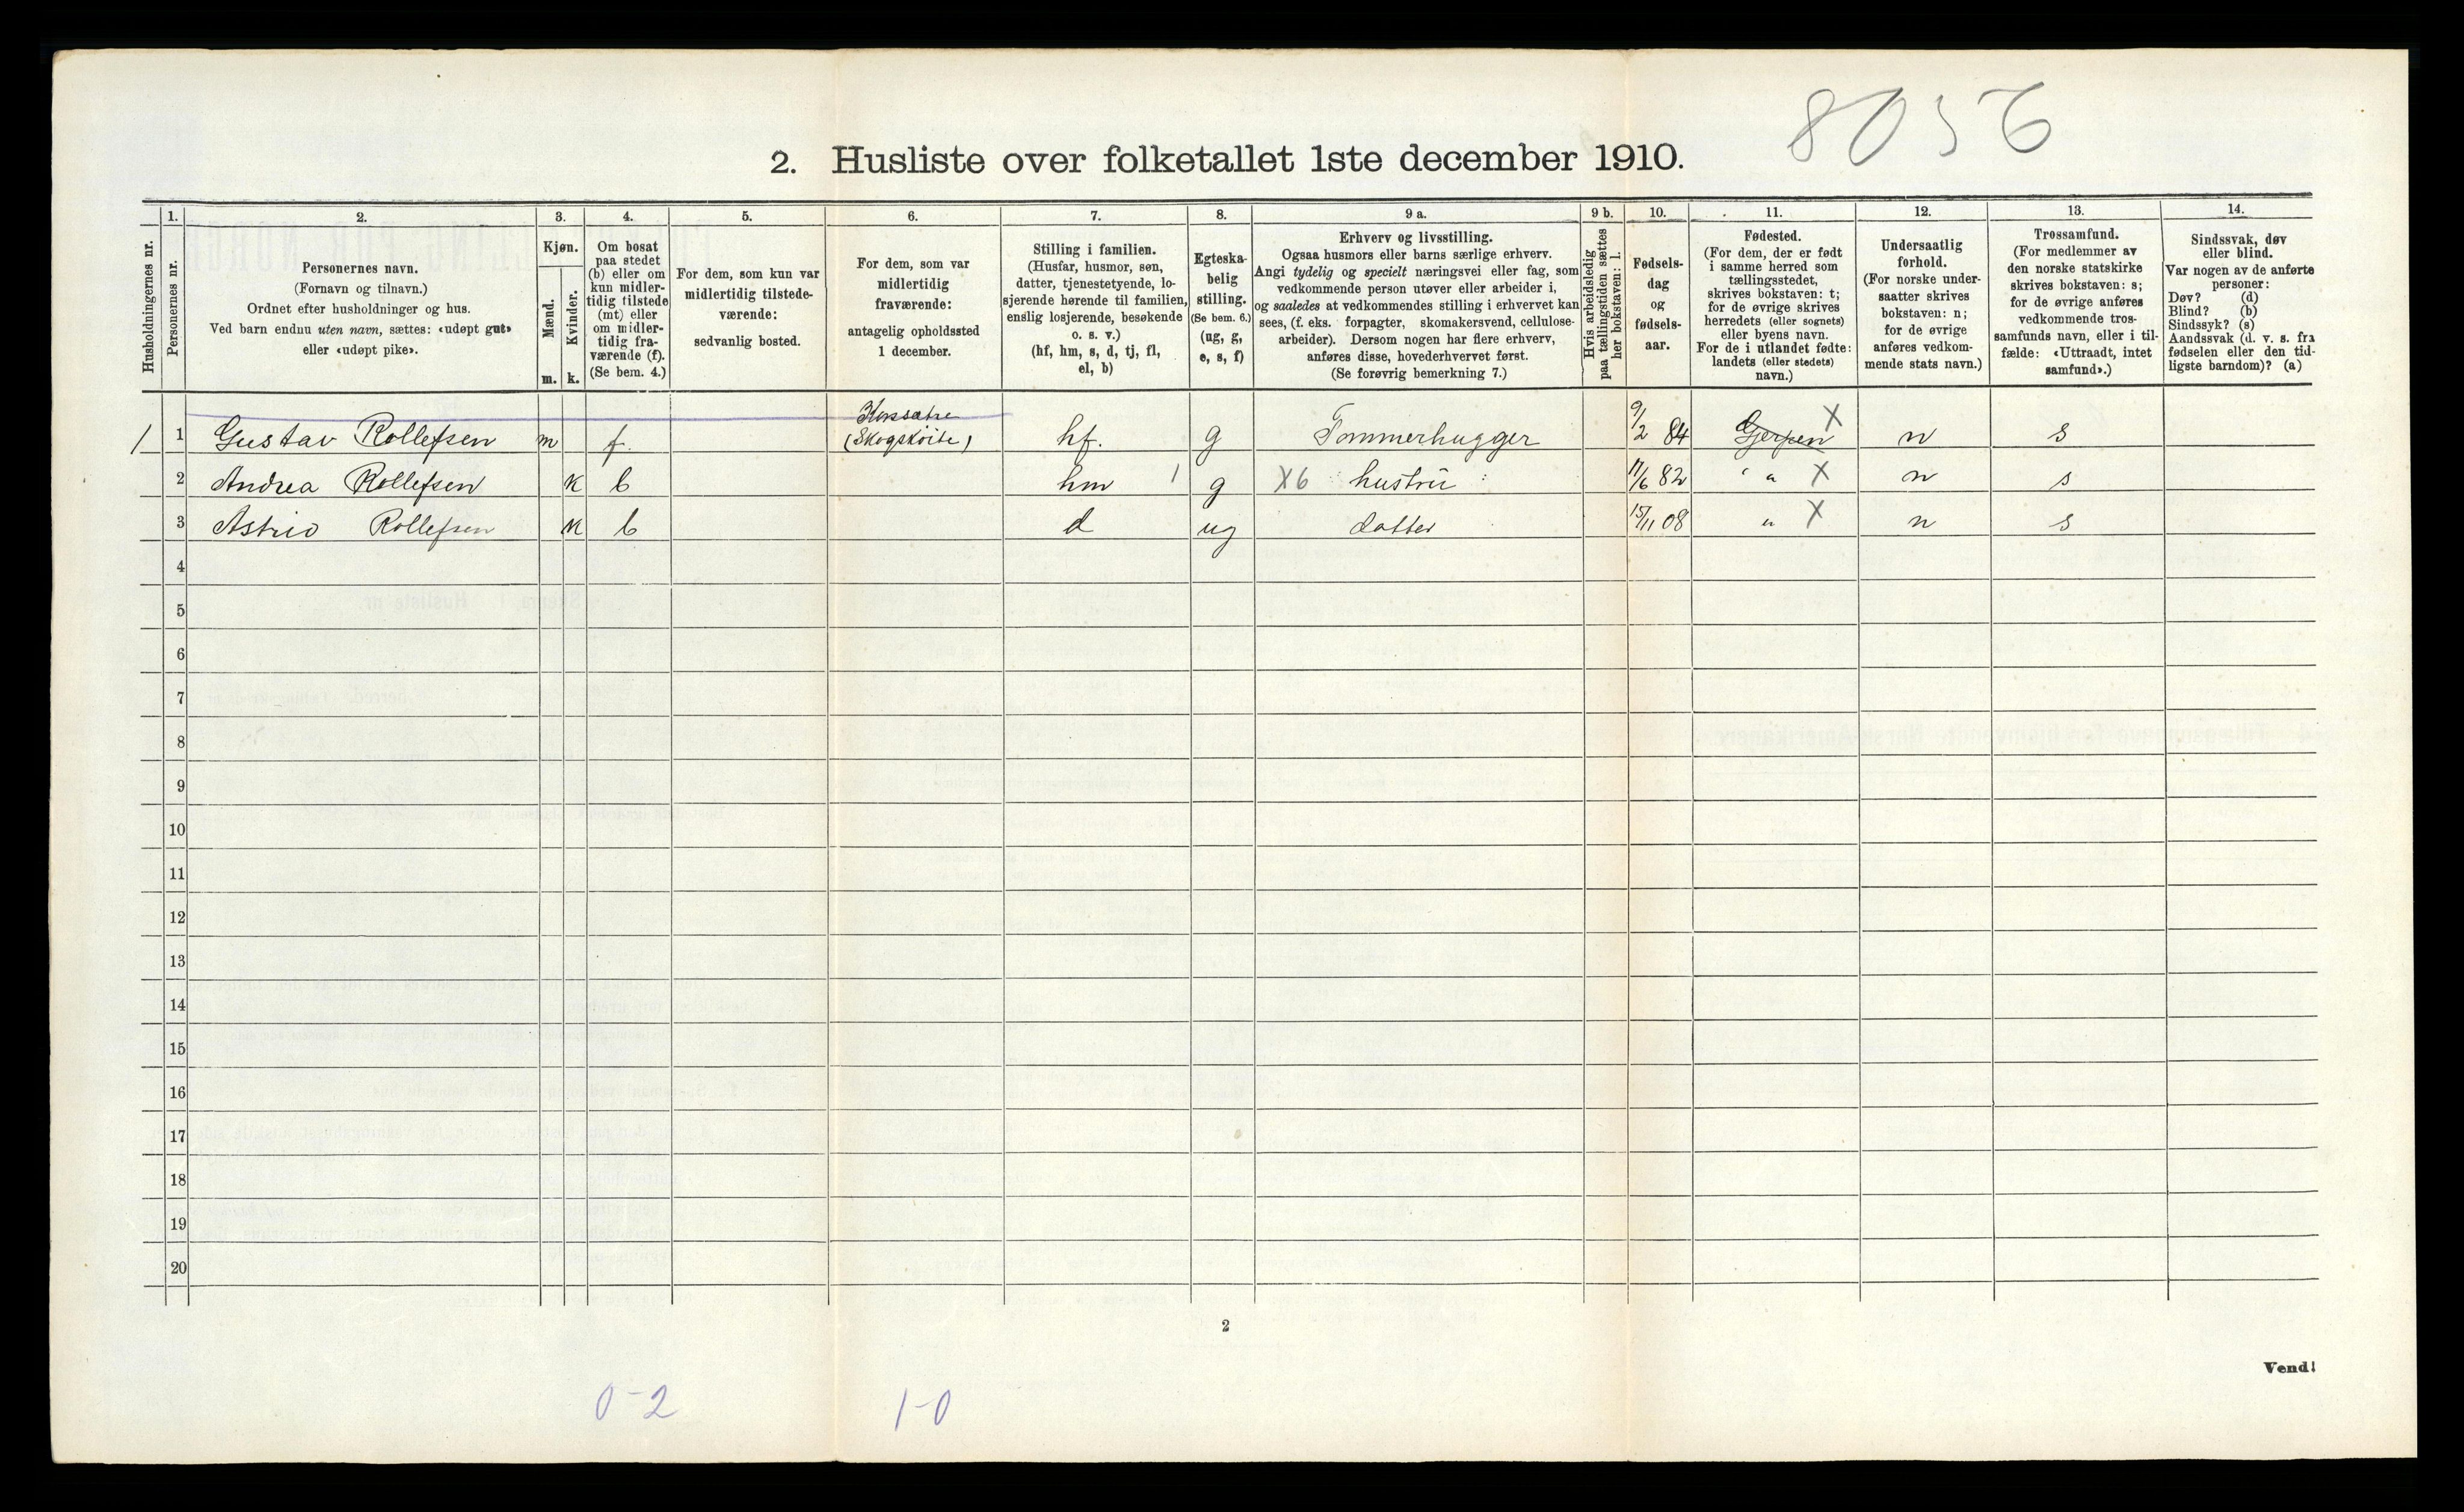 8056
2. Husliste over folketallet 1ste december 1910.
Husholdningernes nr.
1.
Personernes nr.
2.
Personernes navn.
(Fornavn og tilnavn.)
Ordnet efter husholdninger og hus.
Ved barn endnu uten navn, sættes: «udøpt gut»
eller «udøpt pike».
3.
Kjøn.
Mænd.
m.
Kvinder.
k.
4.
Om bosat
paa stedet
(b) eller om
kun midler-
tidig tilstede
(mt) eller
om midler-
tidig fra-
værende (f).
(Se bem. 4.)
5.
For dem, som kun var
midlertidig tilstede-
værende:
sedvanlig bosted.
6.
For dem, som var
midlertidig
fraværende:
antagelig opholdssted
1 december.
7.
Stilling i familien.
(Husfar, husmor, søn,
datter, tjenestetyende, lo-
sjerende hørende til familien,
enslig losjerende, besøkende
o. s. v.)
(hf, hm, s, d, tj, fl,
el, b)
8.
Egteska-
belig
stilling.
(Se bem. 6.)
(ug, g,
e, s, f)
9 a.
Erhverv og livsstilling.
Ogsaa husmors eller barns særlige erhverv.
Angi tydelig og specielt næringsvei eller fag, som
vedkommende person utøver eller arbeider i,
og saaledes at vedkommendes stilling i erhvervet kan
sees, (f. eks. forpagter, skomakersvend, cellulose-
arbeider). Dersom nogen har flere erhverv,
anføres disse, hovederhvervet først.
(Se forøvrig bemerkning 7.)
9 b.
Hvis arbeidsledig
paa tællingstiden sættes
her bokstaven: l.
10.
Fødsels-
dag
og
fødsels-
aar.
11.
Fødested.
(For dem, der er født
i samme herred som
tællingsstedet,
skrives bokstaven: t;
for de øvrige skrives
herredets (eller sognets)
eller byens navn.
For de i utlandet fødte:
landets (eller stedets)
navn.)
12.
Undersaatlig
forhold.
(For norske under-
saatter skrives
bokstaven: n;
for de øvrige
anføres vedkom-
mende stats navn.)
13.
Trossamfund.
(For medlemmer av
den norske statskirke
skrives bokstaven: s;
for de øvrige anføres
vedkommende tros-
samfunds navn, eller i til-
fælde: «Uttraadt, intet
samfund».)
14.
Sindssvak, døv
eller blind.
Var nogen av de anførte
personer:
Døv? (d)
Blind? (b)
Sindssyk? (s)
Aandssvak (d. v. s. fra
fødselen eller den tid-
ligste barndom)? (a)
1 1 Gustav Rollefsen m f. (Skogskoite) hf. g Tømmerhugger 9/2 84 Gjerpen X n s
2 Andrea Rollefsen k b hm 1 g X6 hustru 17/6 82 " " X n s
3 Astrid Rollefsen k b d ug datter 15/11 08 " X n s
4
5
6
7
8
9
10
11
12
13
14
15
16
17
18
19
20
2
Vend!
0-2 1-0